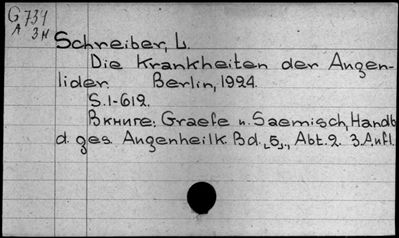 G 734
A 3H
Schreiber, L.
Die Krankheiten der Augen-
lider. Berlin, 1924.
S.1-612.
Вкниге: Graefe u. Saemisch, Handb.
d. ges. Augenheilk. Bd. „5„, Abt. 2. 3. Aufl.